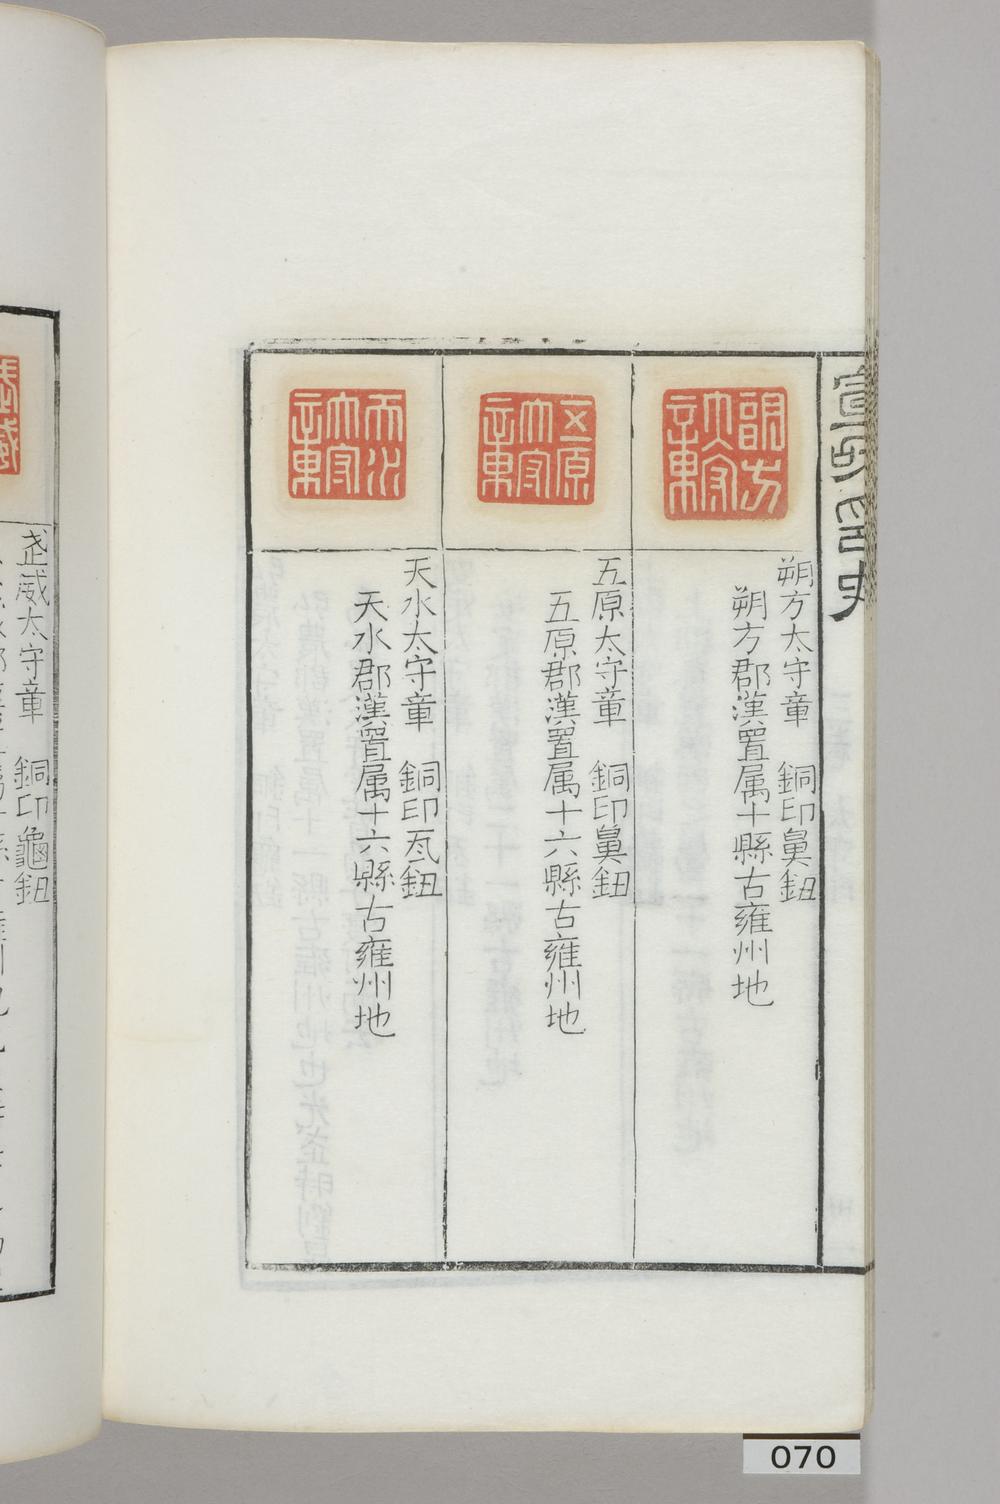 宣和印史
朔方太守章
朔方太守章　銅印鼻鈕
朔方郡漢置属十縣古雍州地
五原太守章
五原太守章　銅印鼻鈕
五原郡漢置属十六縣古雍州地
天水太守章
天水太守章　銅印瓦鈕
天水郡漢置属十六縣古雍州地
武威
武威太守章　銅印龜鈕
070